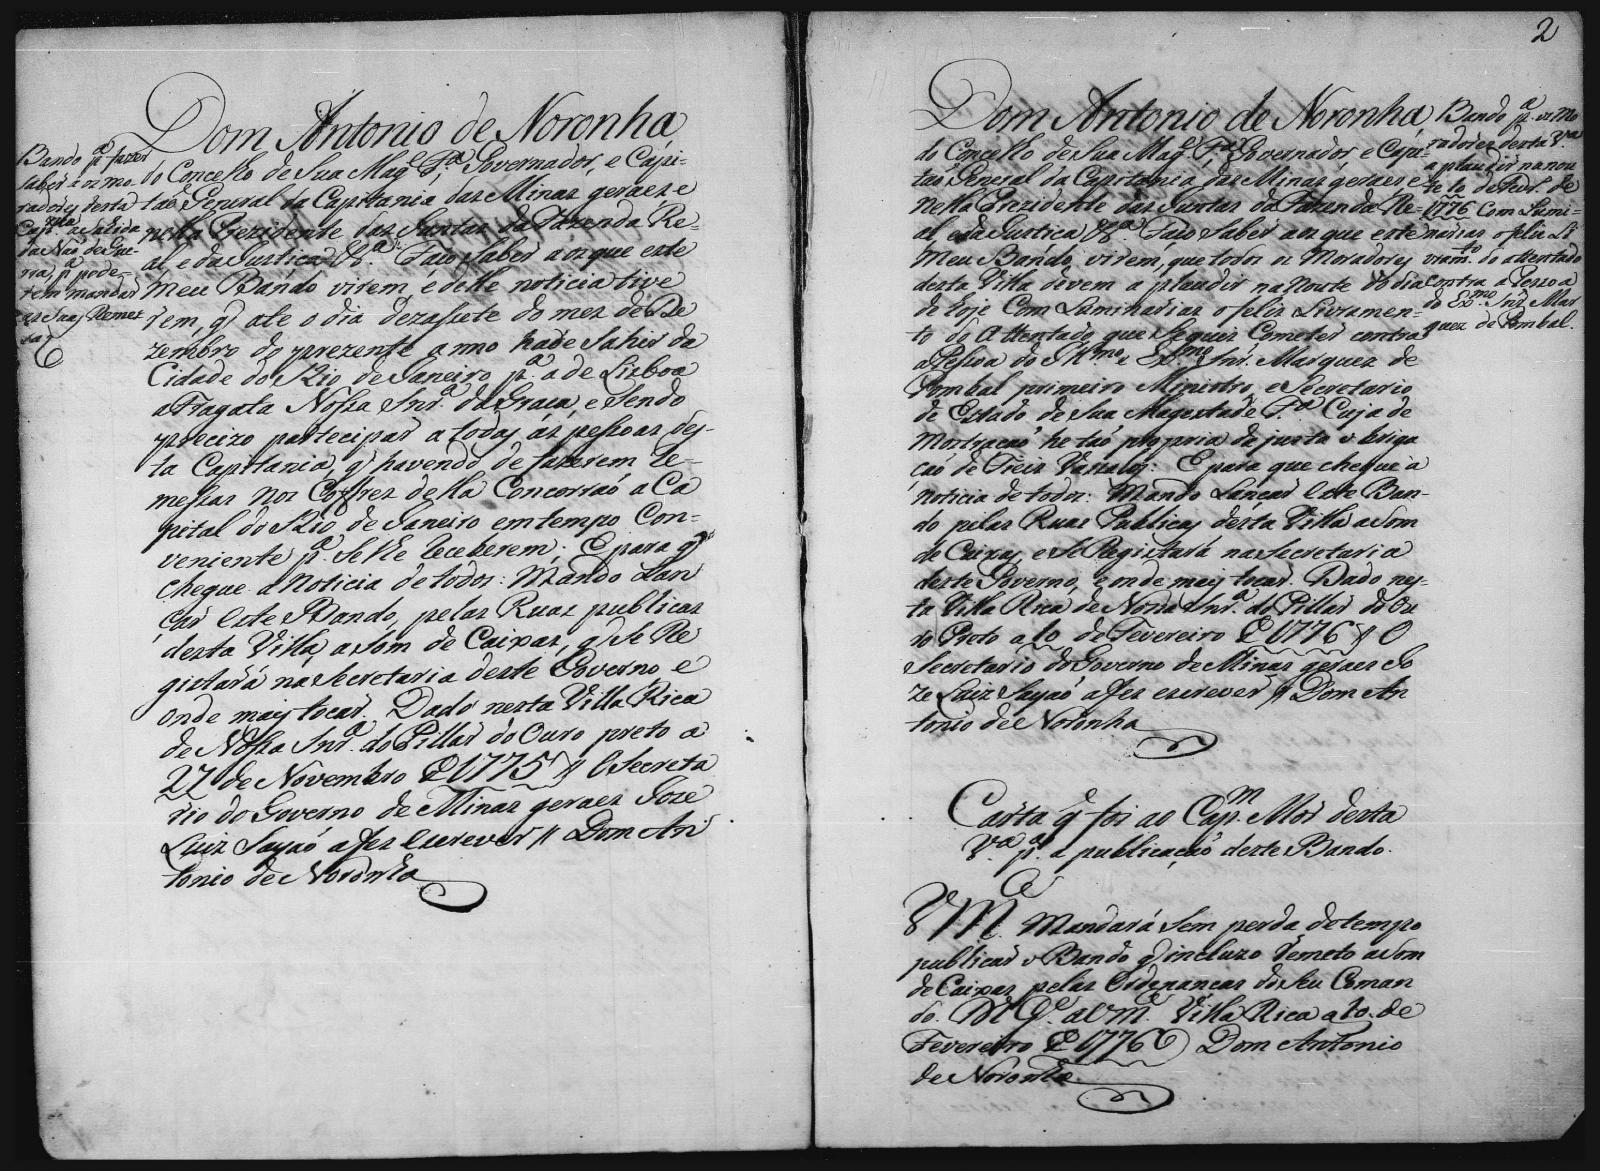 Bando p.ª fazer
saber aos mo-
radores desta
Capi.nia a sahida
da Náo de Gue-
rra, p.ª pode-
rem mandar
as suas Remes
sas
Dom Antonio de Noronha
do Concelho de Sua Mag.e F.ª Governador, e Capi-
tão General da Capitania das Minas geraes, e
nella Prezidente das Juntas da Fazenda Re-
al, e da Justiça &.ª Faço saber aos que este
meu Bando virem, e delle noticia tive
rem, q' ate o dia dezassete do mez de De
zembro do prezente anno hade sahir da
Cidade do Rio de Janeiro p.ª a de Lisboa
a Fragata Nossa Snr.ª da Graça, e sendo
precizo partecipar a todas as pessoas des-
ta Capitania, q' havendo de fazerem re-
messas nos Cofres della Concorrão a Ca
pital do Rio de Janeiro em tempo Con-
veniente p.ª se lhe receberem. E para q'
chegue a noticia de todos: Mando Lan
çar este Bando, pelas Ruas publicas
desta Villa, a som de Caixas, q' se Re
gistará na secretaria deste Governo, e
onde mais tocar. Dado nesta Villa Rica
de Nossa Snr.ª do Pillar do Ouro preto a
27 de Novembro de 1775 // O Secreta
rio do Governo de Minas geraes Joze
Luiz Sayão a fez escrever // Dom An
tonio de Noronha
2
Dom Antonio de Noronha
do Concelho de Sua Mag.e F.ª Governador, e Capi-
tão General da Capitania das Minas geraes e
nella Prezidente das Juntas da Fazenda Re-
al e da Justiça &.ª Faço saber aos que este
meu Bando, virem, que todos os Moradores
desta Villa devem aplaudir na Noute do dia
de hoje Com Luminarias o feliz Livramen-
to do Attentado que se quiz Cometer contra
a Pessoa do Ill.mo e Ex.mo Snr. Marquez de
Pombal primeiro Ministro, e Secretario
de Estado de Sua Magestade F.ª Cuja de
mostração he tão propria da justa obriga
ção de Fieis Vassalos: E para que chegue a
noticia de todos: Mando Lançar este Ban-
do pelas Ruas Publicas desta Villa a som
de Caixas e se Registará na secretaria
deste Governo, e onde mais tocar. Dado nes-
ta Villa Rica de Nossa Snr.ª do Pillar do Ou
ro Preto a 10 de Fevereiro de 1776 // O
Secretario do Governo de Minas geraes Jo
ze Luiz Sayão a fez escrever // Dom An
tonio de Noronha
Bando p.ª os Mo
radores desta V.ª
aplaudir na nou
te 10 de Fevr. de
1776 Com Lumi-
narias o feliz Li
vram.to do attentado
Contra a Pessoa
do Ex.mo Snr Mar
quez de Pombal.
Carta q' foi ao Cap.m Mor desta
V.ª p.ª a publicação deste Bando.
V M.ce Mandará sem perda de tempo
publicar o Bando q' incluzo remeto a som
de Caixas pelas Ordenanças do seu Coman
do. D.s G.e a V m.ce Villa Rica a 10 de
Fevereiro de 1776 Dom Antonio
de Noronha